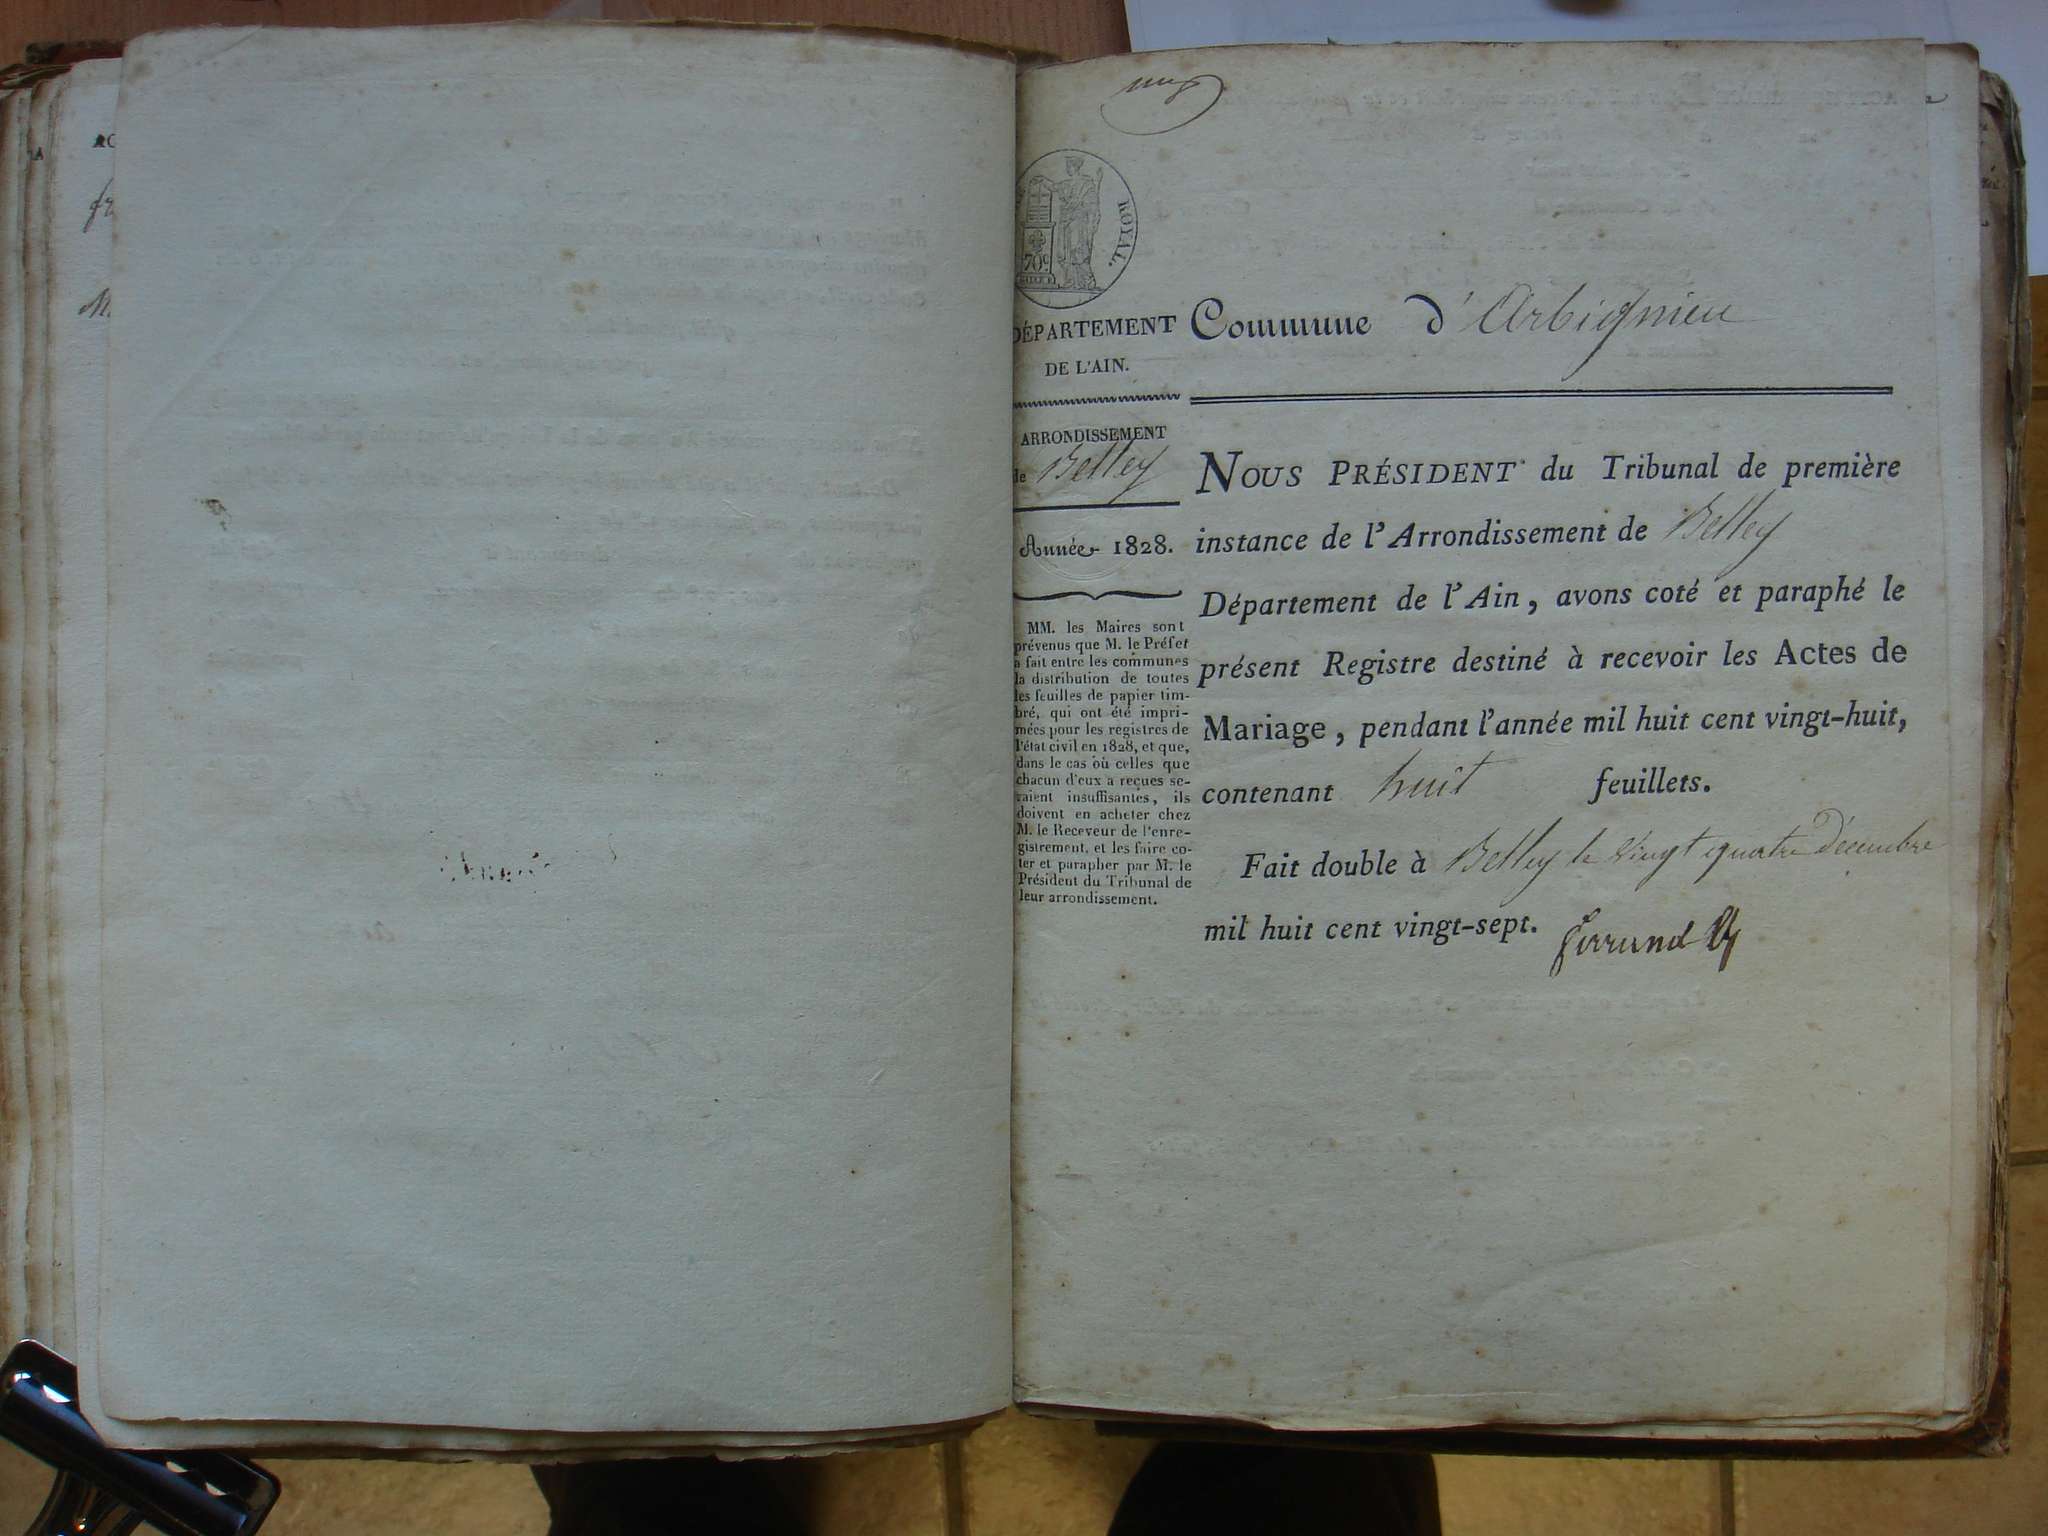 ROYAL.
70c
DÉPARTEMENT
DE L'AIN.
ARRONDISSEMENT
de Belley
Année 1828.
MM. les Maires sont
prévenus que M. le Préfet
a fait entre les communes
la distribution de toutes
les feuilles de papier tim-
bré, qui ont été impri-
mées pour les registres de
l'état civil en 1828, et que,
dans le cas où celles que
chacun d'eux a reçues se-
raient insuffisantes, ils
doivent en acheter chez
M. le Receveur de l'enre-
gistrement, et les faire co-
ter et parapher par M. le
Président du Tribunal de
leur arrondissement.
Commune d'Arbignieu
NOUS PRÉSIDENT du Tribunal de première
instance de l'Arrondissement de Belley
Département de l'Ain, avons coté et paraphé le
présent Registre destiné à recevoir les Actes de
Mariage, pendant l'année mil huit cent vingt-huit,
contenant huit feuillets.
Fait double à Belley le vingt quatre Décembre
mil huit cent vingt-sept.